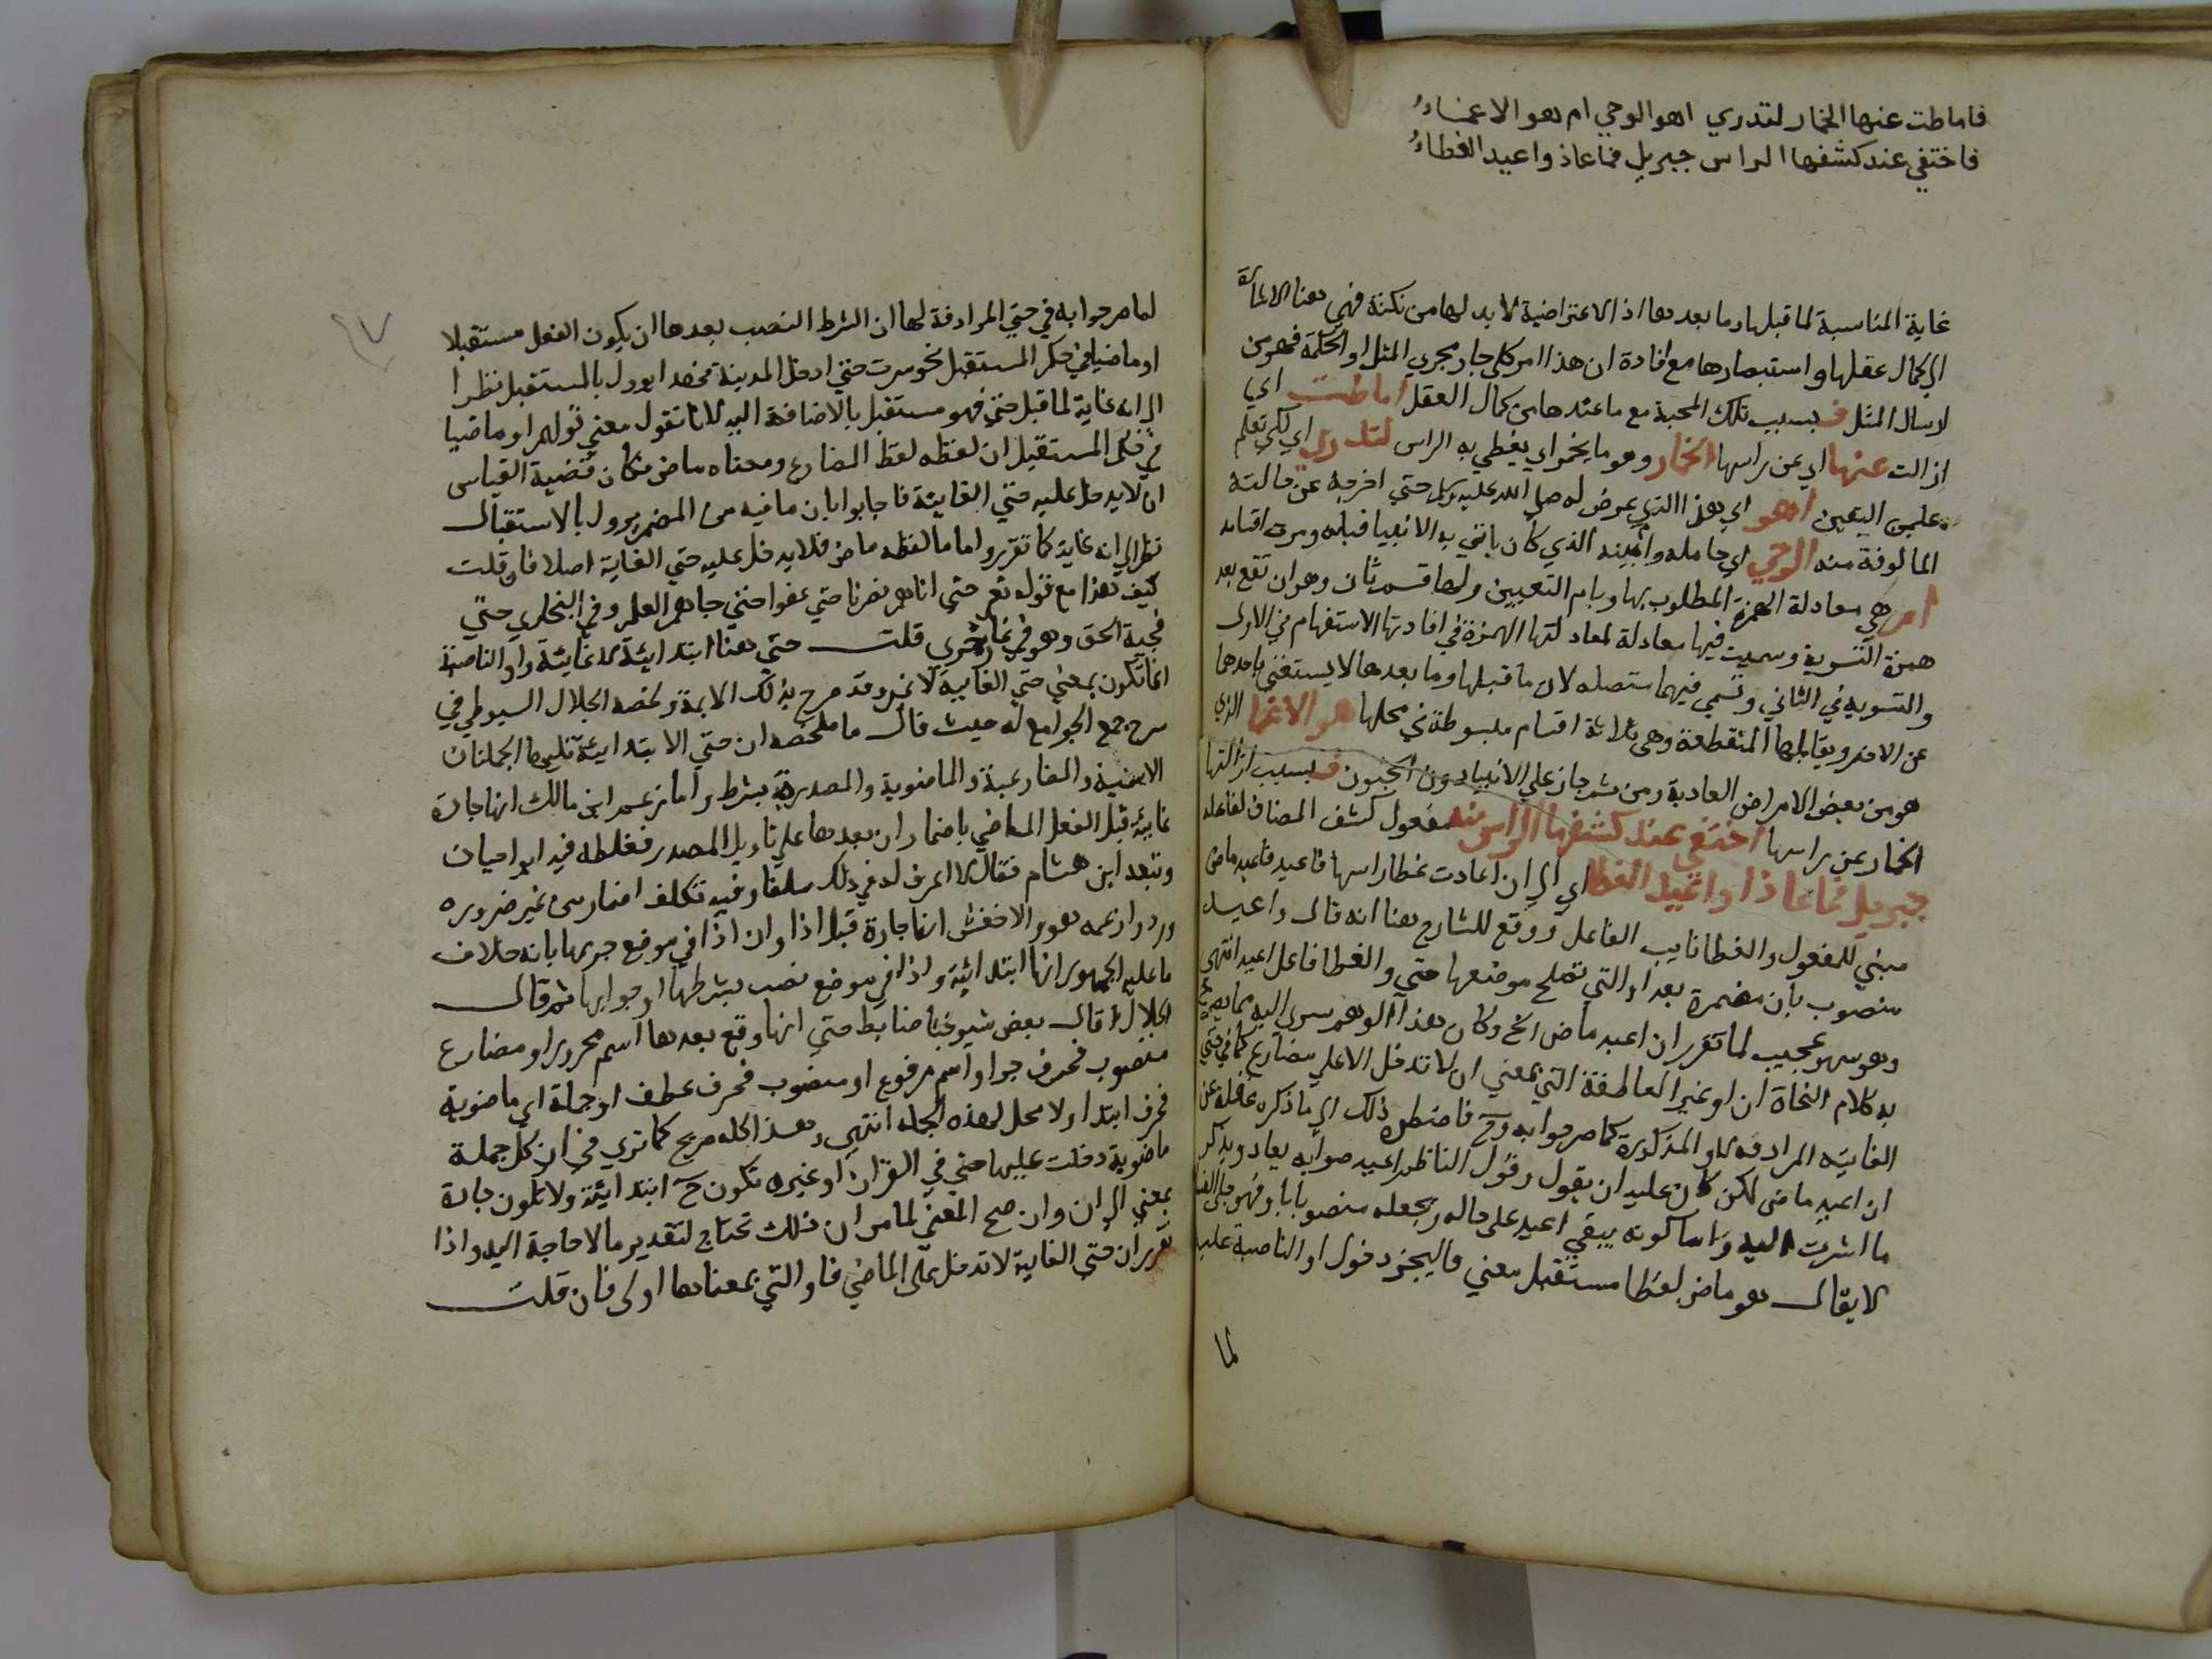 فاماطت عنها الخمار لتدري اهو الوحي ام هو الاغماءُ
فاختفي عند كشفها الراس جبريل فما عاذ واعيد الغطاءُ
غاية المناسبة لما قبلها وما بعدها اذ الاعتراضية لا بد لها من نكتة فهي هنا الاشارة
الي كمال عقلها واستبصارها مع افادة ان هذا امر كلي جار مجري المثل او الحكمة فهو من
ارسال المثل ف بسبب تلك المحبة مع ما عندها من كمال العقل اماطت اي
ازالت عنها اي عن راسها الخمار وهو ما يخمر اي يغطي به الراس لتدري اي لكي تعلم
علي اليقين اهو اي هذا الذي عرض له صلي الله عليه وسلم حتي اخرجه عن حالته
المالوفة منه الوحي اي حامله وامينه الذي كان ياتي به الانبيا قبله ومرت اقسامه
ام هي معادلة الهمزة المطلوب بها وبام التعيين ولها قسم ثان وهو ان تقع بعد
همزة التسوية وسميت فيها معادلة لمعادلتها الهمزة في افادتها الاستفهام في الاول
والتسوية في الثاني وتسمي فيهما متصله لان ما قبلها وما بعدها لا يستغني باحدهما
عن الاخر ويقابلها المنقطعة وهي ثلاثة اقسام مبسوطة في محلها هو الاغما الذي
هو من بعض الامراض العادية ومن ثم جاز علي الانبيا دون الجنون ف بسبب ازالتها
الخمار عن راسها اختفي عند كشفها الراس منه مفعول كشف المضاف لفاعله
جبريل فما عاذ واعيد الغطا اي الي ان اعادت غطا راسها فاعيد فاعيد ماض
مبني للمفعول والغطا نايب الفاعل ووقع للشارح هنا انه قال واعيد
منصوب بان مضمرة بعد او التي تصلح موضعها حتي والغطا فاعل اعيد انتهي
وهو سهو عجيب لما تقرر ان اعيد ماض الخ وكان هذا الوهم سري اليه مما يصرح
به كلام النحاة ان او غير العاطفة التي بمعني ان لا تدخل الا علي مضارع كما في حتي
الغاية المرادفة لاو المذكورة كما صرحوا به وح فاضطره ذلك الي ما ذكره غافلا عن
ان اعيد ماض لكن كان عليه ان يقول وقول الناظم اعيد صوابه يعاد ويذكر
ما اشرت اليه واما كونه يبقي اعيد علي حاله ويجعله منصوبا باو فهو
لا يقال هو ماض لفظا مستقبل معني فاليجز دخول او الناصبة عليه
لما
لما مر جوابه في حتي المرادفة لها ان الشرط النصب بعدها ان يكون الفعل مستقبلا
او ماضيا في حكم المستقبل نحو سرت حتي ادخل المدينة فهذا يوول بالمستقبل نظرا
الي انه غاية لما قبل حتي فهو مستقبل بالاضافة اليه لانا نقول معني قولهم او ماضيا
في حكم المستقبل ان لفظه لفظ المضارع ومعناه ماض فكان قضية القياس
ان لا يدخل عليه حتي الغايية فاجابوا بان ما فيه من المضمر يوول بالاستقبال
نظرا الي انه غاية كما تقرر واما ما لفظه ماض فلا يدخل عليه حتي الغاية اصلا فان قلت
كيف هذا مع قوله تعر حتي اتاهم نصرنا حتي عفوا حتي جاهم العلم وفي البخاري حتي
فجيه الحق وهو في غار حري قلت حتي هنا ابتدائية لا غائية واو الناصبة
انما تكون بمعني حتي الغايية لا غير وقد صرح بذلك الايمة ولخصه الجلال السيوطي في
شرح جمع الجوامع له حيث قال ما ملخصه ان حتي الابتدائية تليها الجملتان
الاسمية والمضارعية والماضوية والمصدرة بشرط واما زعم ابن مالك انها جارة
غايية قبل الفعل الماضي باضمار ان بعدها علي تاويل المصدر فغلطه فيه ابو حيان
وتبعه ابن هشام فقال لا اعرف له في ذلك سلفا وفيه تكلف اضمار من غير ضروره
وردوا زعمه هو والاخفش انها جارة قبل اذا وان اذا في موضع جر بها بانه خلاف
ما عليه الجمهور انها ابتدائية واذا في موضع نصب بشرطها او جوابها ثم قال
الجلال قال بعض شيوخنا ضابط حتي انها وقع بعدها اسم مجرور او مضارع
منصوب فحرف جر او اسم مرفوع او منصوب فحرف عطف او جملة اي ماضوية
فحرف ابتدا ولا محل لهذه الجمله انتهي وهذا كله صريح كما تري في ان كل جملة
ماضوية دخلت عليها حتي في القران او غيره تكون ح ابتدائية ولا تكون جارة
بمعني الي ان وان صح المعني لما مر ان ذلك تحتاج لتقدير ما لا حاجة اليه واذا
تقرر ان حتي الغاية لا تدخل علي الماضي فاو التي بمعناها اولي فان قلت